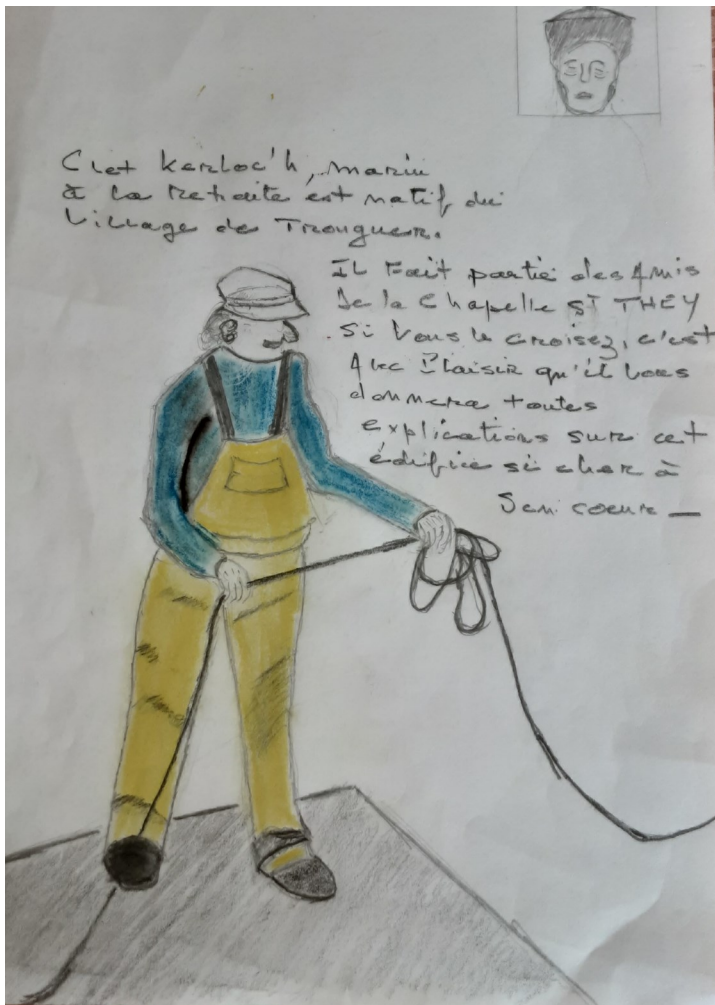 Clet Kerloc'h, marin
à la Retraite est natif du
Village de Trouguer.
Il Fait partie des Amis
De la Chapelle ST THEY
Si Vous le croisez, c'est
Avec Plaisir qu'il vous
donnera toutes
explications sur cet
édifice si cher à
Son coeur _